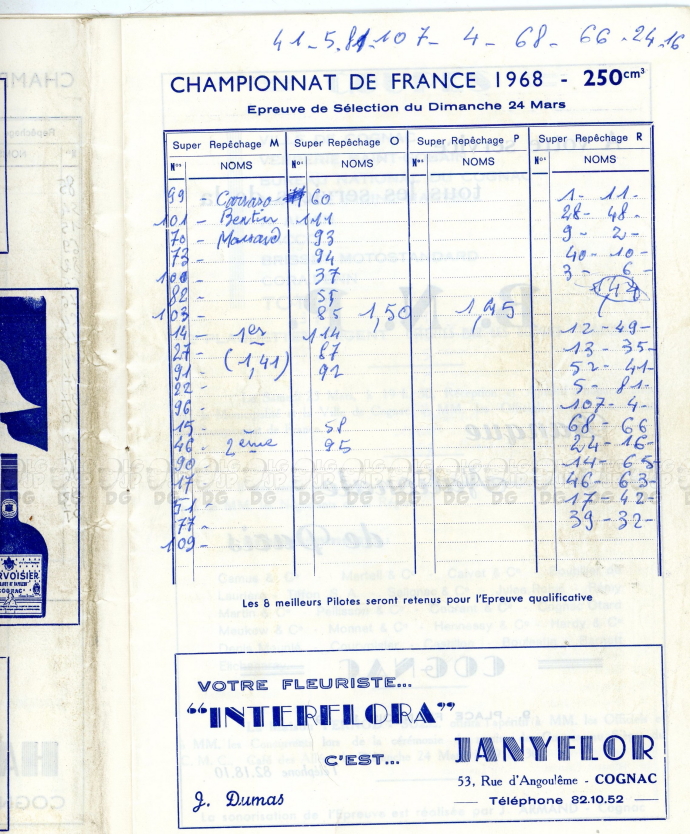 41-5.81-107-4-68-66-24-16
CHAMPIONNAT DE FRANCE 1968 - 250cm³
Epreuve de Sélection du Dimanche 24 Mars
Super Repêchage M Super Repêchage O Super Repêchage P Super Repêchage R
Nos NOMS Nos NOMS Nos NOMS Nos NOMS
99 - 60 1- 11-
101 - Bentin 111 28- 48-
70 - Massard 93 9- 2-
73 - 94 40- 10-
100 - 37 3- 6-
82 - 55 44
103 - 85 1,50 1,45
14 - 1er 114 12-49-
27 - (1,41) 87 13- 35-
91 - 92 52- 41-
22 - 5- 81-
96 - 107- 4-
15 - 58 68- 66
46 - 2ème 95 24- 16-
90 - 14- 65
17 - 46- 63-
51 - 17-42-
77 - 39-32-
109 -
Les 8 meilleurs Pilotes seront retenus pour l'Epreuve qualificative
VOTRE FLEURISTE...
"INTERFLORA"
C'EST... JANYFLOR
53, Rue d'Angoulême - COGNAC
J. Dumas Téléphone 82.10.52
RVOISIER
COGNAC